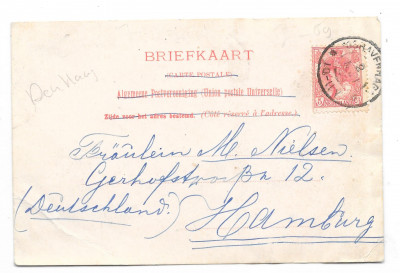 59
BRIEFKAART
(CARTE POSTALE)
Den Haag
Algemeene Postvereeniging (Union postale Universelle)
Zijde voor het adres bestemd. (Côté réservé à l'adresse.)
Fräulein M. Nielsen.
Gerhofstraße 12.
(Deutschland.)
Hamburg